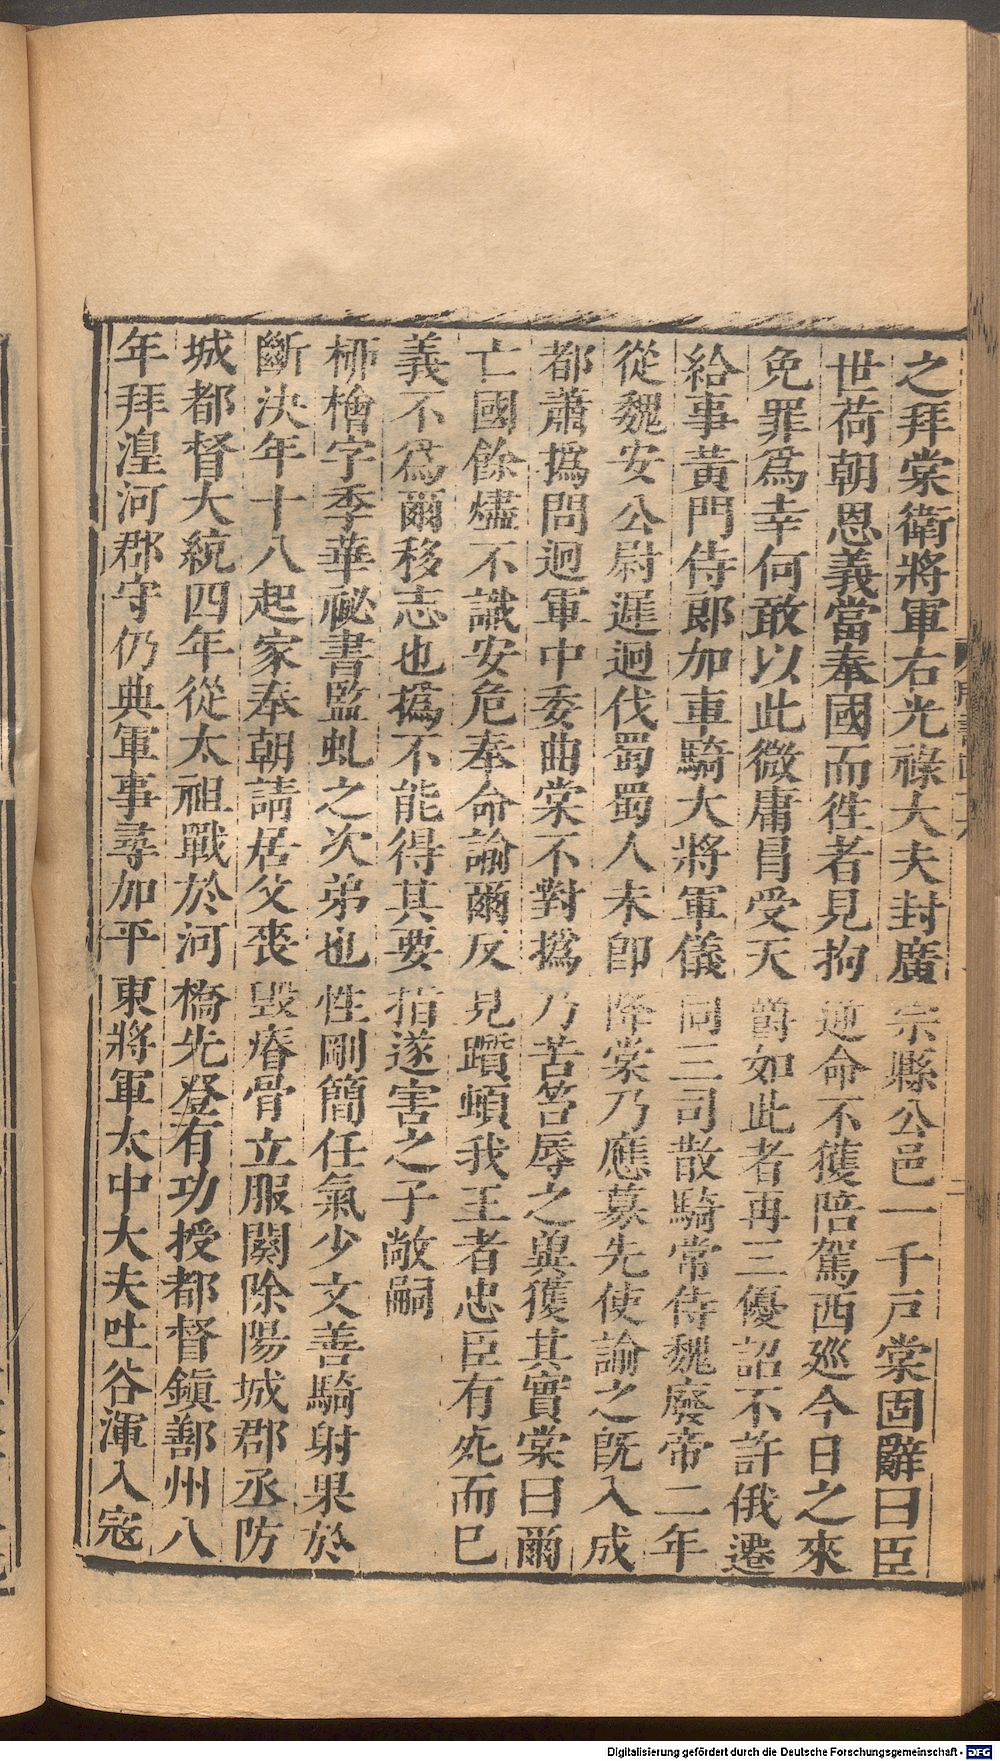 之拜棠衛將軍右光祿大夫封廣宗縣公邑一千戸棠固辭曰臣
世荷朝恩義當奉國而徃者見拘逆命不獲陪駕西廵今日之來
免罪爲幸何敢以此微庸昌受天爵如此者再三優詔不許俄遷
給事黃門侍郎加車騎大將軍儀同三司散騎常侍魏廢帝二年
從魏安公尉遲迥伐蜀蜀人未卽降棠乃應募先使諭之旣入成
都蕭撝問迥軍中委曲棠不對撝乃苦笞辱之兾獲其實棠曰爾
亡國餘燼不識安危奉命諭爾反見躓頓我王者忠臣有死而已
義不爲爾移志也撝不能得其要指遂害之子敞嗣
栁檜字季華祕書監虬之次弟也性剛簡任氣少文善騎射果於
斷決年十八起家奉朝請居父喪毀瘠骨立服闋除陽城郡丞防
城都督大統四年從太祖戰於河橋先登有功授都督鎭鄯州八
年拜湟河郡守仍典軍事尋加平東將軍太中大夫吐谷渾入寇
Digitalisierung gefördert durch die Deutsche Forschungsgemeinschaft - DFG